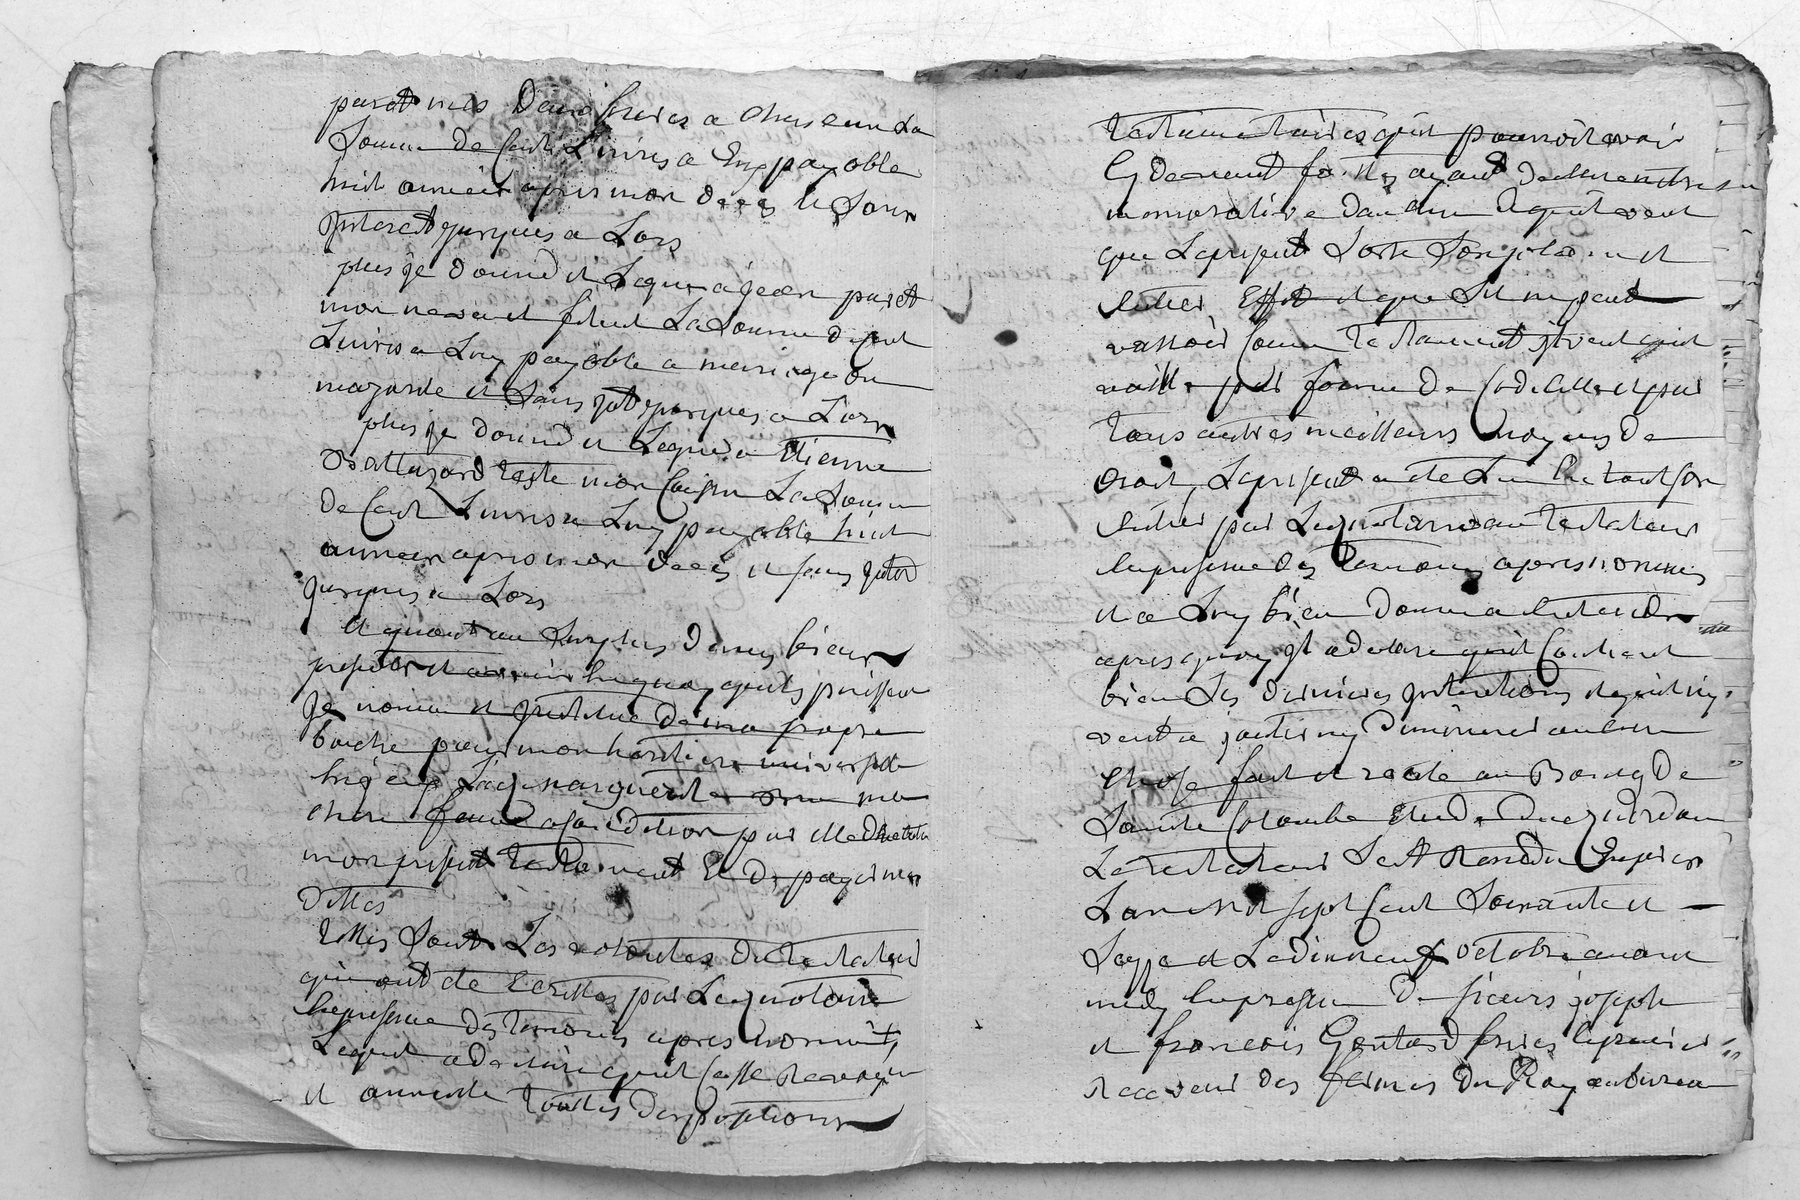 paret mes deux freres a chascun la
somme de cent livres a eux payable
huit années apres mon deces et sans
jnteret jusques a lors
plus je donne et legue a jean paret
mon neveu et filleul la somme de cent
livres a luy payable a mariage ou
majorité et sans jnt jusques a lors
plus je donne et legue a Etienne
mon cousin la somme
de cent livres a luy payable huit
années apres mon deces et sans jnter
jusques a lors
et quant au surplus de mes biens
presents et avenir en quoy quils puissent
je nomme et jnstitue de ma propre
bouche pour mon heritiere universelle
marguerite ma
chere femme a condition par elle
mon present testament et de payer mes
dettes
telles sont les volontes du testateur
qui ont eté Ecrittes par le notaire
en presence des temoins apres nommés
lequel a declaré quil casse revoque
et annulle touttes dispositions
testamentaires quil pourroit avoir
cy devant fait ny ayant
dans aucune et quil veut
que le present sorte son plain et
entier Effet et que sil ne peut
valloir comme testament jl veut quil
vaille par forme de codicille et par
tous autres meilleurs moyens de
droit, le present a eté lu en tout son
entier par le notaire au testateur
en presence des temoins apres nommés
et a luy bien donné a entendre
apres quoy jl a declaré quil contient
bien ses dernieres jntentions et quil ny
veut ajouter ny diminuer aucune
chose fait et recité au Bourg de
Sainte Colombe Etude du
Le testateur
Lan mil sept cent soixante et
seize et le dixneuf octobre avant
midy en presence de sieurs joseph
et francois Goutard freres le premier
receveur des fermes du Roy au bureau